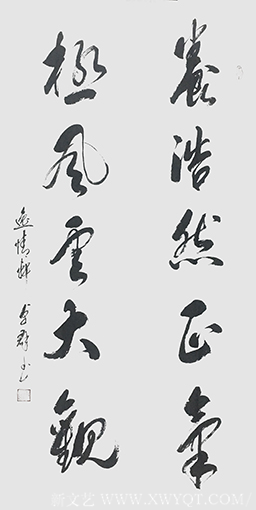 養浩然正氣
極風雲大觀
新文艺 WWW.XWYQT.COM/